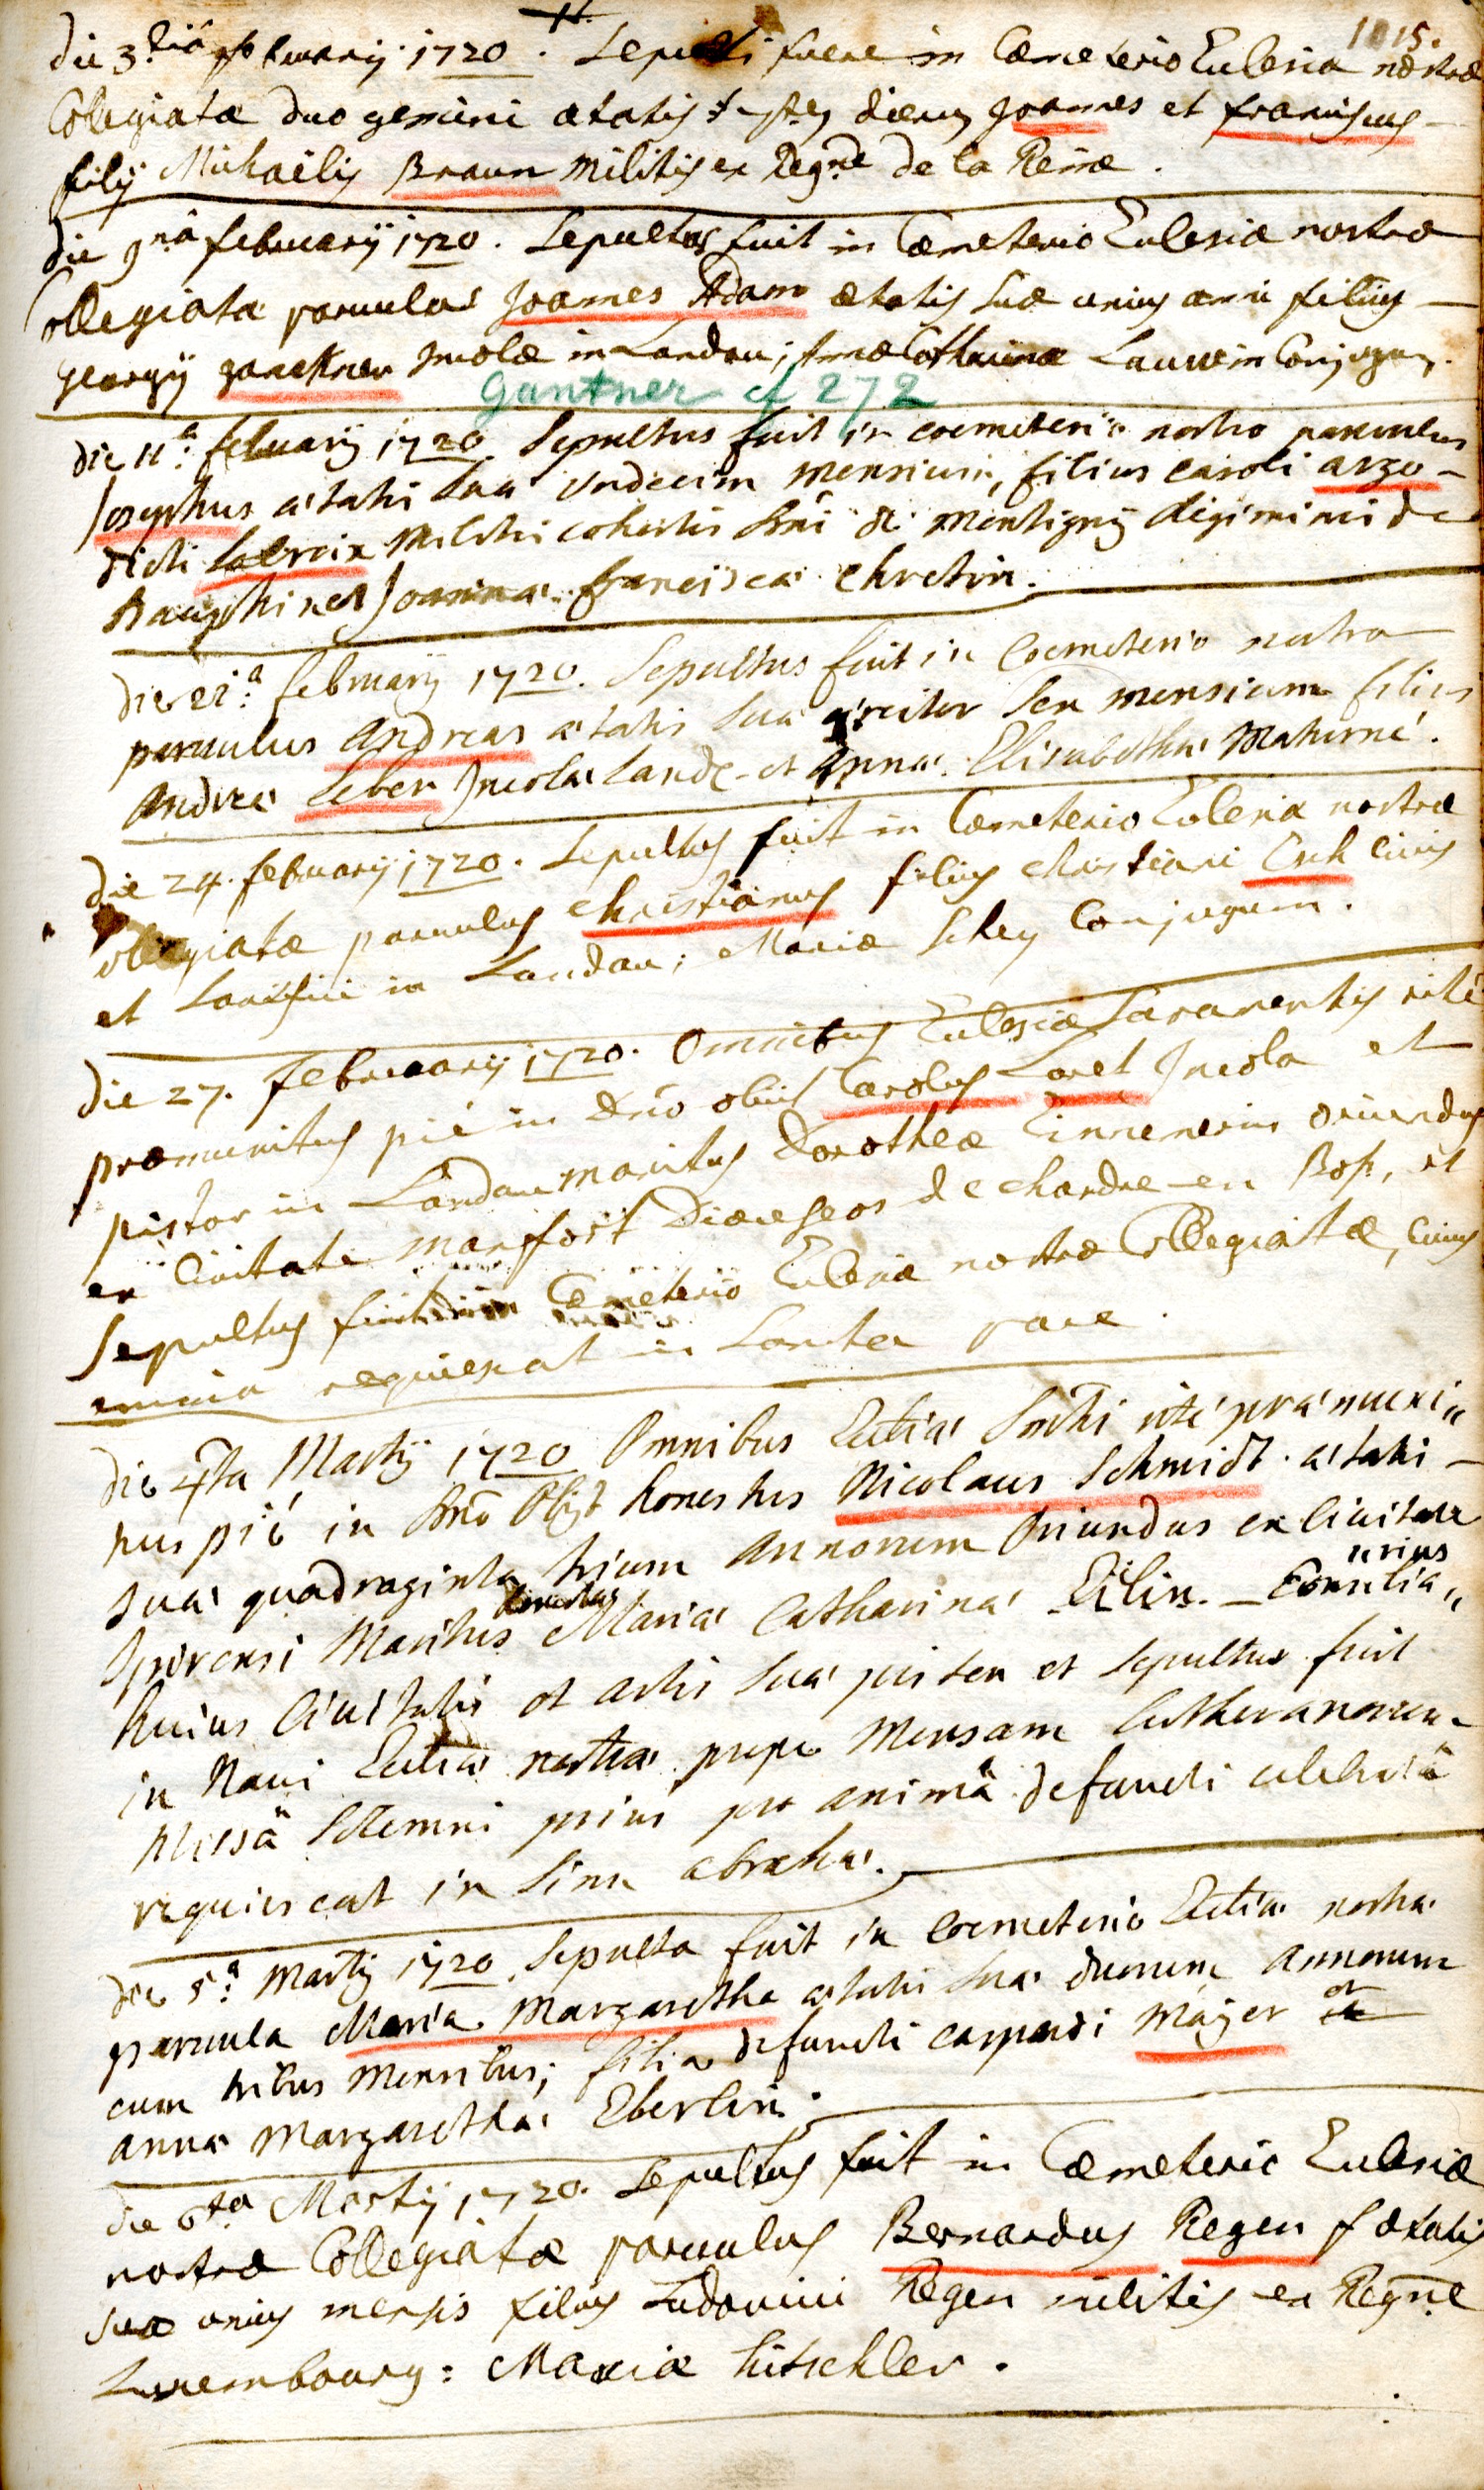 1015.
die 3.tiâ februarÿ 1720. Sepulti fuere in Cæmeterio Ecclesiæ nostræ
Collegiatæ duo gemini ætatis dierum Joannes et franciscus
filÿ Michaëlis Braun Militis ex Regne de la Reine.
die 9nâ februarÿ 1720. Sepultus fuit in Cæmeterio Ecclesiæ nostræ
Collegiatæ parvulus Joannes Adam ætatis suæ unius anni filius
Georgÿ ganttner incolæ in Landau; Annæ Catharinæ Lauwein Conjugum.
Gantner cf 272
die 11.a februarÿ 1720. Sepultus fuit in coemeterio nostro parvulus
Josephus ætatis suæ undecim mensium, filius caroli argo
dicti Lacroix Militis cohortis Dni de Montignÿ Regiminis de
Dauphine et Joannæ franciscæ chretin.
die 21.a februarÿ 1720. Sepultus fuit in Coemeterio nostro
parvulus Andreas ætatis suæ circiter sex mensium filius
Andreæ Leber Incolæ Land. et Annæ Elisabethæ Maturné.
die 24. februarÿ 1720. Sepultus fuit in Cæmeterio Ecclesiæ nostræ
Collegiatæ parvulus christianus filius christiani Esch civis
et Lanificii in Landau; Mariæ Schey Conjugum.
die 27. februarÿ 1720. Omnibus Ecclesiæ Sacramentis rite
præmunitus pie in Dno obiit Carolus Loret Incola et
pistor in Landau maritus Dorotheæ Zinnenerin oriundus
ex Civitate Monfort Diœceseos de chardre en Bos, et
Sepultus fuit in Cæmeterio Ecclesiæ nostræ Collegiatæ, cuius
anima requiescat in Sancta pace.
die 4ta Martÿ 1720 Omnibus Ecctiæ Sacrtis rité præmuni"
tus pié in Dno Obÿt honestus Nicolaus Schmidt ætatis
suæ quadraginta trium annorum oriundus ex civitate
Spirensi Maritus Mariæ Catharinæ Eilin. Consilia"
rius
huius Civitatis et artis suæ pistor et sepultus fuit
in Navi Ecctiæ nostræ prope Mensam Lutheranorum
Missâ Solemni prius pro animâ defuncti celebratâ
requiescat in sinu abrahæ.
die 5.a Martÿ 1720 Sepulta fuit in Coemeterio Ecctiæ nostræ
parvula Maria Margaretha ætatis suæ duorum annorum
cum tribus Mensibus; filia defuncti caspari Majer et
annæ Margarethæ Eberlin.
die 6ta Martÿ 1720. Sepultus fuit in Cæmeterio Ecclesiæ
nostræ Collegiatæ parvulus Bernardus Regen ætatis
suæ unius mensis filius Ludovici Regen militis ex Regne
Luxembourg: Mariæ hitschler.